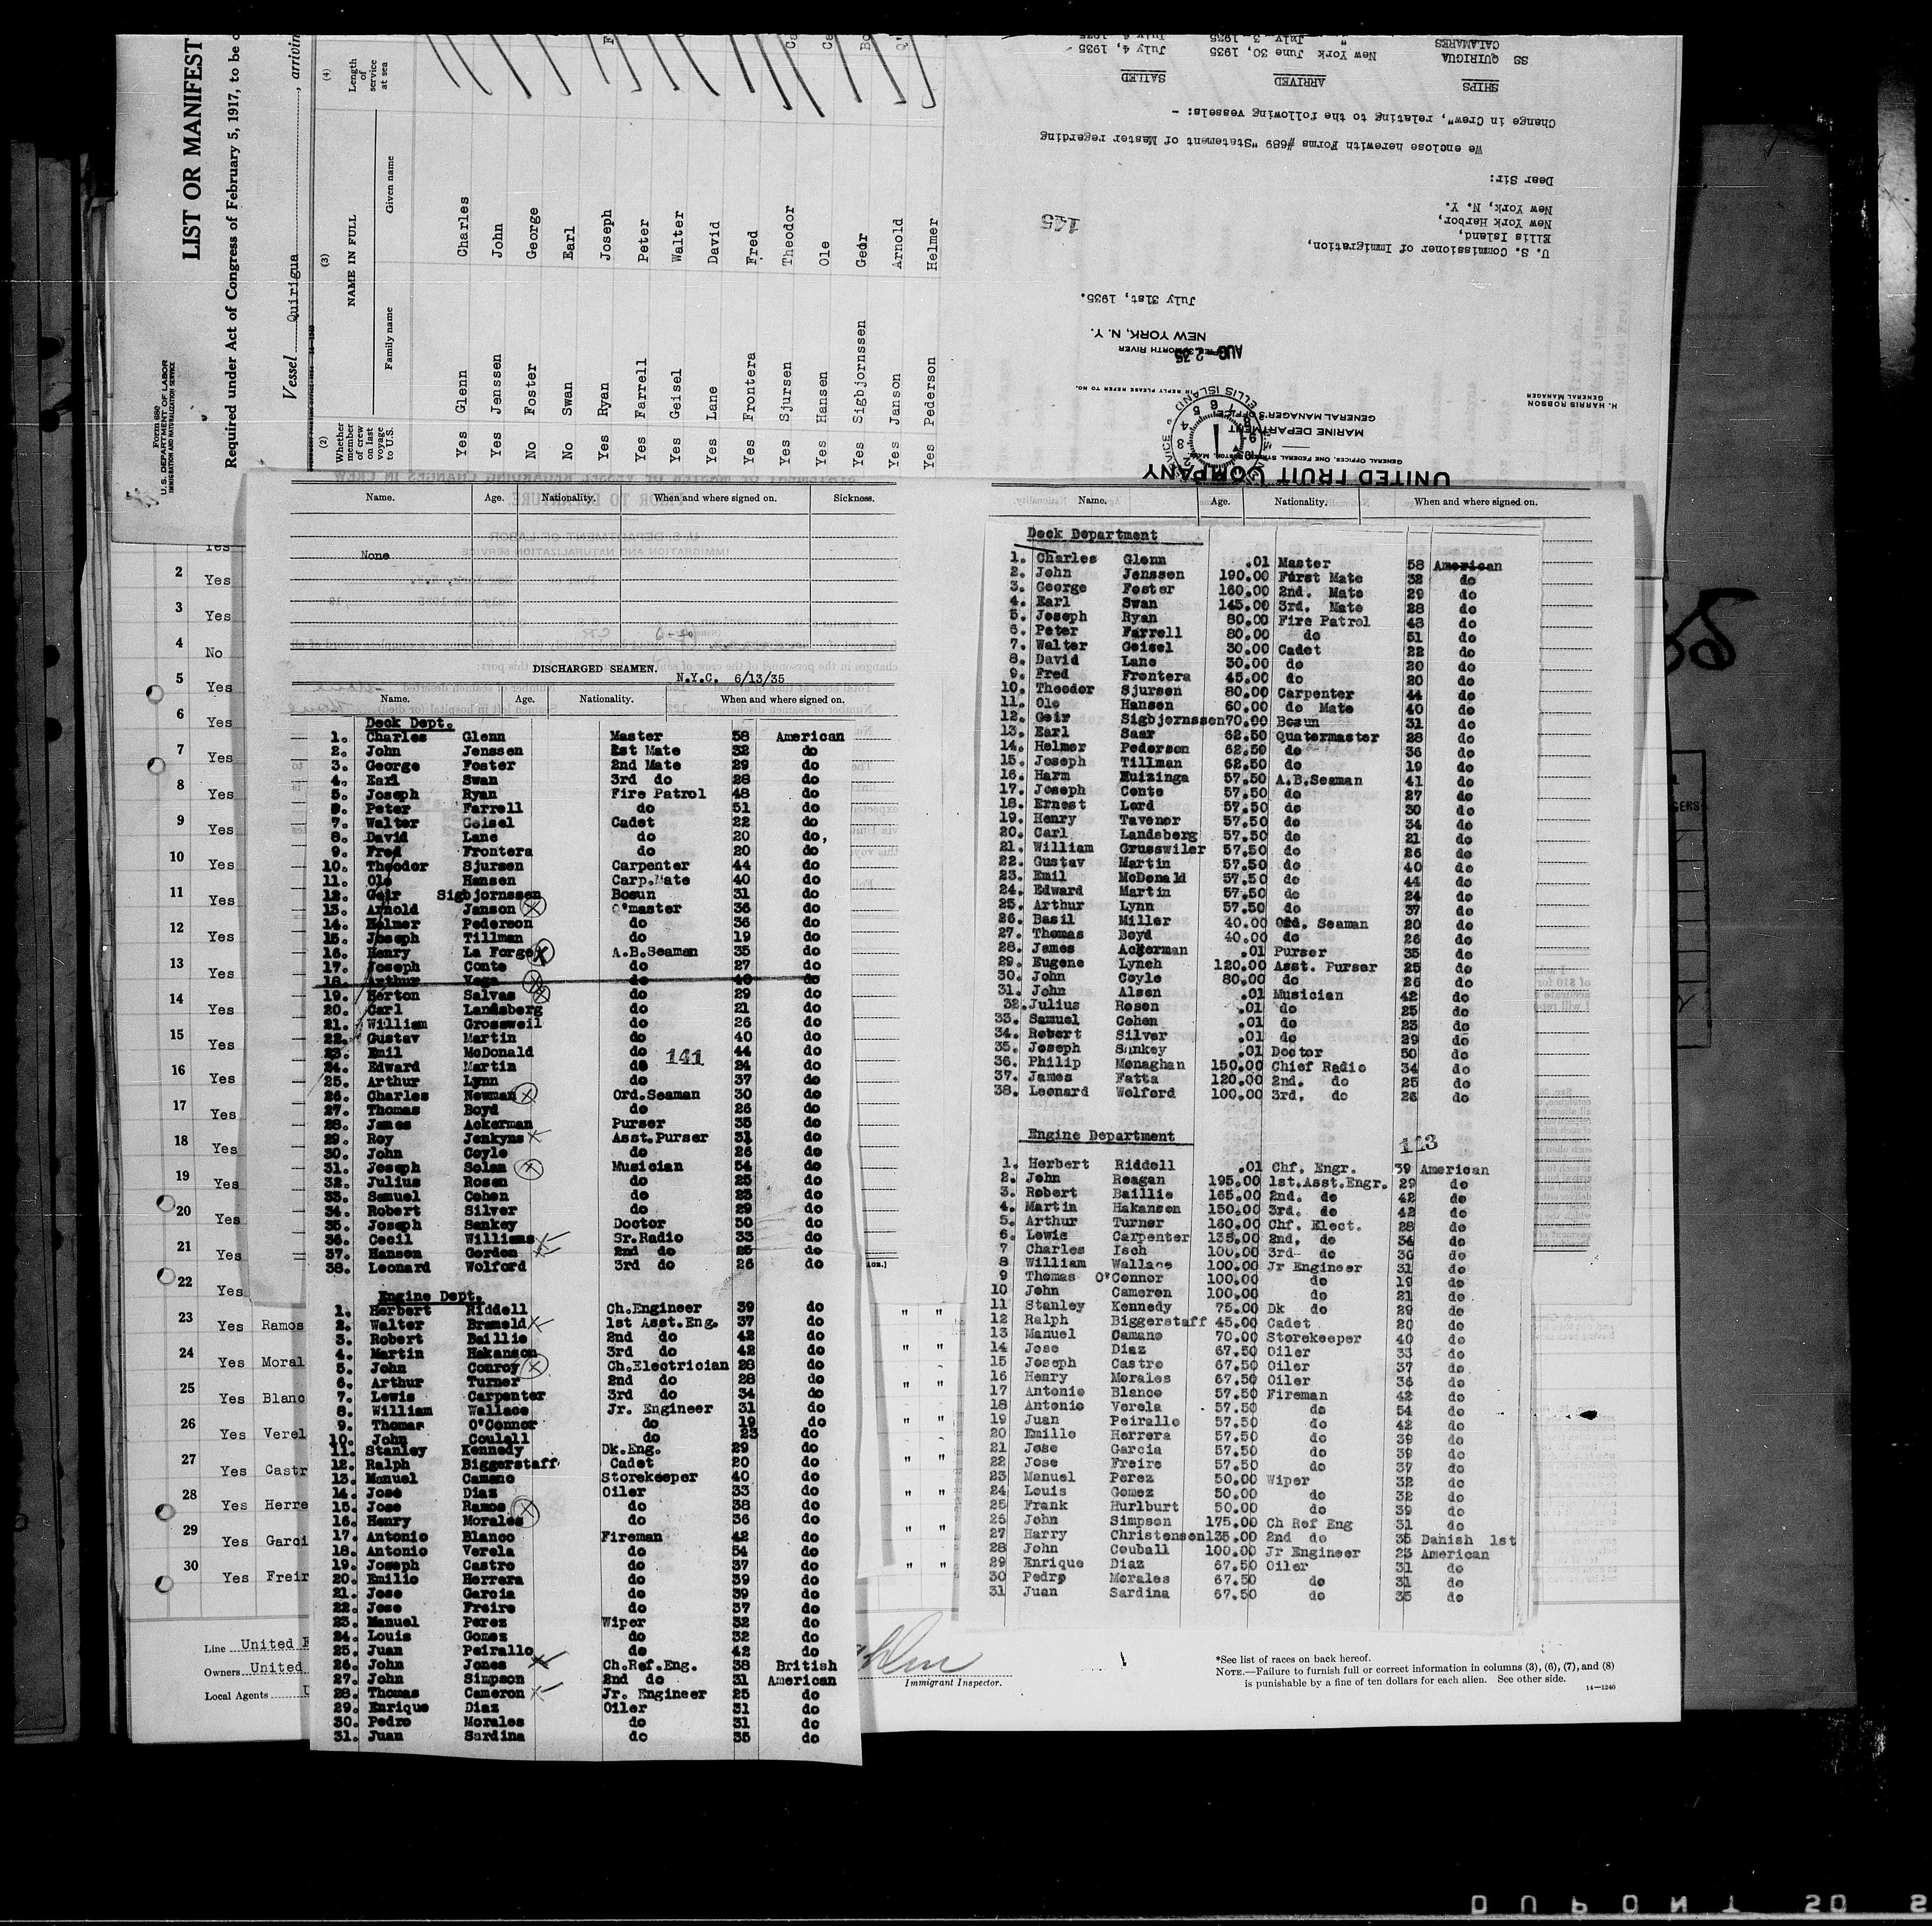 Form 680
U. S. DEPARTMENT OF LABOR
IMMIGRATION AND NATURALIZATION SERVICE
LIST OR MANIFEST
Required under Act of Congress of February 5, 1917, to be
Vessel Quirigua, arrivin
(2) (3) (4)
Whether member of crew on last voyage to U.S.
NAME IN FULL
Family name Given name
Length of service at sea
Yes Glenn Charles
Yes Jenssen John
No Foster George
No Swan Earl
Yes Ryan Joseph
Yes Farrell Peter
Yes Geisel Walter
Yes Lane David
Yes Frontera Fred
Yes Sjursen Theodor
Yes Hansen Ole
Yes Sigbjornssen Geir
Yes Janson Arnold
Yes Pederson Helmer
UNITED FRUIT COMPANY
GENERAL OFFICES, ONE FEDERAL STREET, BOSTON, MASS.
MARINE DEPARTMENT
GENERAL MANAGER'S OFFICE
H. HARRIS ROBSON
GENERAL MANAGER
IN REPLY PLEASE REFER TO NO.
NORTH RIVER
NEW YORK, N. Y.
July 31st, 1935.
U. S. Commissioner of Immigration,
Ellis Island,
New York Harbor,
New York, N. Y.
145
Dear Sir:
We enclose herewith Forms #689 "Statement of Master regarding
Change in Crew", relating to the following vessels: -
SHIPS ARRIVED SAILED
SS QUIRIGUA New York June 30, 1935 July 4, 1935
CALAMARES " July 3, 1935 July 6, 1935
Name. Age. Nationality. When and where signed on. Sickness.
None
DISCHARGED SEAMEN.
N.Y.C. 6/13/35
Name. Age. Nationality. When and where signed on.
Deck Dept.
1. Charles Glenn Master 58 American
2. John Jenssen 1st Mate 32 do
3. George Foster 2nd Mate 29 do
4. Earl Swan 3rd do 28 do
5. Joseph Ryan Fire Patrol 48 do
6. Peter Farrell do 51 do
7. Walter Geisel Cadet 22 do
8. David Lane do 20 do,
9. Fred Frontera do 20 do
10. Theodor Sjursen Carpenter 44 do
11. Ole Hansen Carp.Mate 40 do
12. Geir Sigbjornssen Bosun 31 do
13. Arnold Janson Q'master 36 do
14. Helmer Pederson do 36 do
15. Joseph Tillman do 19 do
16. Henry La Forge A.B.Seaman 35 do
17. Joseph Conte do 27 do
18. Arthur Vega do 40 do
19. Horton Salvas do 29 do
20. Carl Landsberg do 21 do
21. William Grossweil do 26 do
22. Gustav Martin do 40 do
23. Emil McDonald do 44 do
141
24. Edward Martin do 24 do
25. Arthur Lynn do 37 do
26. Charles Newman Ord.Seaman 30 do
27. Thomas Boyd do 26 do
28. James Ackerman Purser 35 do
29. Roy Jenkyns Asst.Purser 31 do
30. John Coyle do 26 do
31. Joseph Solan Musician 54 do
32. Julius Rosen do 25 do
33. Samuel Cohen do 23 do
34. Robert Silver do 29 do
35. Joseph Sankey Doctor 50 do
36. Cecil Williams Sr.Radio 33 do
37. Hanson Gordon 2nd do 25 do
38. Leonard Wolford 3rd do 26 do
Engine Dept.
1. Herbert Riddell Ch.Engineer 39 do
2. Walter Brameld 1st Asst.Eng. 37 do
3. Robert Baillie 2nd do 42 do
4. Martin Hakanson 3rd do 42 do
5. John Conroy Ch.Electrician 28 do
6. Arthur Turner 2nd do 28 do
7. Lewis Carpenter 3rd do 34 do
8. William Wallace Jr. Engineer 31 do
9. Thomas O'Connor do 19 do
10. John Coulall do 23 do
11. Stanley Kennedy Dk.Eng. 29 do
12. Ralph Biggerstaff Cadet 20 do
13. Manuel Camano Storekeeper 40 do
14. Jose Diaz Oiler 33 do
15. Jose Ramos do 38 do
16. Henry Morales do 36 do
17. Antonio Blanco Fireman 42 do
18. Antonio Verela do 54 do
19. Joseph Castro do 37 do
20. Emilio Herrera do 39 do
21. Jose Garcia do 39 do
22. Jose Freire do 37 do
23. Manuel Perez Wiper 32 do
24. Louis Gomez do 32 do
25. Juan Peirallo do 42 do
26. John Jones Ch.Ref.Eng. 38 British
27. John Simpson 2nd do 31 American
28. Thomas Cameron Jr. Engineer 25 do
29. Enrique Diaz Oiler 31 do
30. Pedro Morales do 31 do
31. Juan Sardina do 35 do
Name. Age. Nationality. When and where signed on.
Deck Department
1. Charles Glenn .01 Master 58 American
2. John Jenssen 190.00 First Mate 32 do
3. George Foster 160.00 2nd. Mate 29 do
4. Earl Swan 145.00 3rd. Mate 28 do
5. Joseph Ryan 80.00 Fire Patrol 48 do
6. Peter Farrell 80.00 do 51 do
7. Walter Geisel 30.00 Cadet 22 do
8. David Lane 30.00 do 20 do
9. Fred Frontera 45.00 do 20 do
10. Theodor Sjursen 80.00 Carpenter 44 do
11. Ole Hansen 60.00 do Mate 40 do
12. Geir Sigbjornssen 70.00 Bosun 31 do
13. Earl Saar 62.50 Quatermaster 28 do
14. Helmer Pederson 62.50 do 36 do
15. Joseph Tillman 62.50 do 19 do
16. Harm Huizinga 57.50 A.B.Seaman 41 do
17. Joseph Conte 57.50 do 27 do
18. Ernest Lord 57.50 do 30 do
19. Henry Tavenor 57.50 do 34 do
20. Carl Landsberg 57.50 do 21 do
21. William Grusswiler 57.50 do 26 do
22. Gustav Martin 57.50 do 40 do
23. Emil McDonald 57.50 do 44 do
24. Edward Martin 57.50 do 24 do
25. Arthur Lynn 57.50 do 37 do
26. Basil Miller 40.00 Ord. Seaman 20 do
27. Thomas Boyd 40.00 do 26 do
28. James Ackerman .01 Purser 35 do
29. Eugene Lynch 120.00 Asst. Purser 25 do
30. John Coyle 80.00 do 26 do
31. John Alsen .01 Musician 42 do
32. Julius Rosen .01 do 25 do
33. Samuel Cohen .01 do 23 do
34. Robert Silver .01 do 29 do
35. Joseph Sankey .01 Doctor 50 do
36. Philip Monaghan 150.00 Chief Radio 34 do
37. James Fatta 120.00 2nd. do 25 do
38. Leonard Wolford 100.00 3rd. do 26 do
Engine Department
113
1. Herbert Riddell .01 Chf. Engr. 39 American
2. John Reagan 195.00 1st.Asst.Engr. 29 do
3. Robert Baillie 165.00 2nd. do 42 do
4. Martin Hakanson 150.00 3rd. do 42 do
5. Arthur Turner 160.00 Chf. Elect. 28 do
6. Lewis Carpenter 135.00 2nd. do 34 do
7 Charles Isch 100.00 3rd do 36 do
8 William Wallace 100.00 Jr Engineer 31 do
9 Thomas O'Connor 100.00 do 19 do
10 John Cameron 100.00 do 21 do
11 Stanley Kennedy 75.00 Dk do 29 do
12 Ralph Biggerstaff 45.00 Cadet 20 do
13 Manuel Camano 70.00 Storekeeper 40 do
14 Jose Diaz 67.50 Oiler 33 do
15 Joseph Castro 67.50 Oiler 37 do
16 Henry Morales 67.50 Oiler 36 do
17 Antonio Blanco 57.50 Fireman 42 do
18 Antonio Verela 57.50 do 54 do
19 Juan Peirallo 57.50 do 42 do
20 Emilio Herrera 57.50 do 39 do
21 Jose Garcia 57.50 do 39 do
22 Jose Freire 57.50 do 37 do
23 Manuel Perez 50.00 Wiper 32 do
24 Louis Gomez 50.00 do 32 do
25 Frank Hurlburt 50.00 do 39 do
26 John Simpson 175.00 Ch Ref Eng 31 do
27 Harry Christenson 135.00 2nd do 35 Danish 1st
28 John Couball 100.00 Jr Engineer 23 American
29 Enrique Diaz 67.50 Oiler 31 do
30 Pedro Morales 67.50 do 31 do
31 Juan Sardina 67.50 do 35 do
2 Yes
3 Yes
4 No
5 Yes
6 Yes
7 Yes
8 Yes
9 Yes
10 Yes
11 Yes
12 Yes
13 Yes
14 Yes
15 Yes
16 Yes
17 Yes
18 Yes
19 Yes
20 Yes
21 Yes
22 Yes
23 Yes Ramos
24 Yes Moral
25 Yes Blanc
26 Yes Verel
27 Yes Castr
28 Yes Herre
29 Yes Garci
30 Yes Freir
Line United F
Owners United
Local Agents U
Immigrant Inspector.
*See list of races on back hereof.
NOTE.—Failure to furnish full or correct information in columns (3), (6), (7), and (8)
is punishable by a fine of ten dollars for each alien. See other side.
14—1240
DUPONT 20